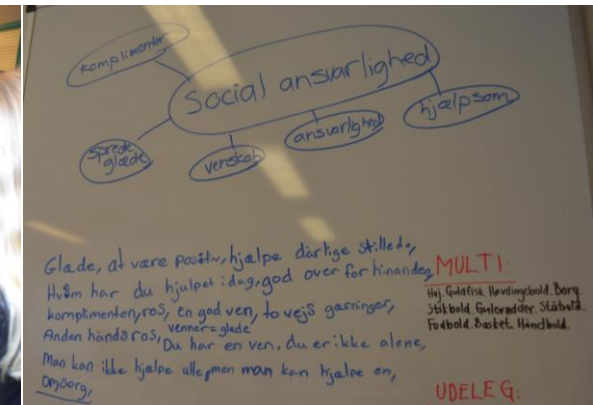 komplimenter
Social ansvarlighed
sprede
glæde
venskab
ansvarlighed
hjælpsom
Glæde, at være positiv, hjælpe dårlige stillede,
Hvem har du hjulpet i dag, god over for hinanden,
komplimenten, ros, en god ven, to vejs gærninger,
Anden hånds ros, venner=glæde
Du har en ven, du er ikke alene,
Man kan ikke hjælpe alle, men man kan hjælpe en,
Omsorg,
MULTI:
Høj. Guldfisk. Høvdingebold. Borg.
Stikbold. Gulerødder. Ståtrold.
Fodbold. Basket. Håndbold.
UDELEG: